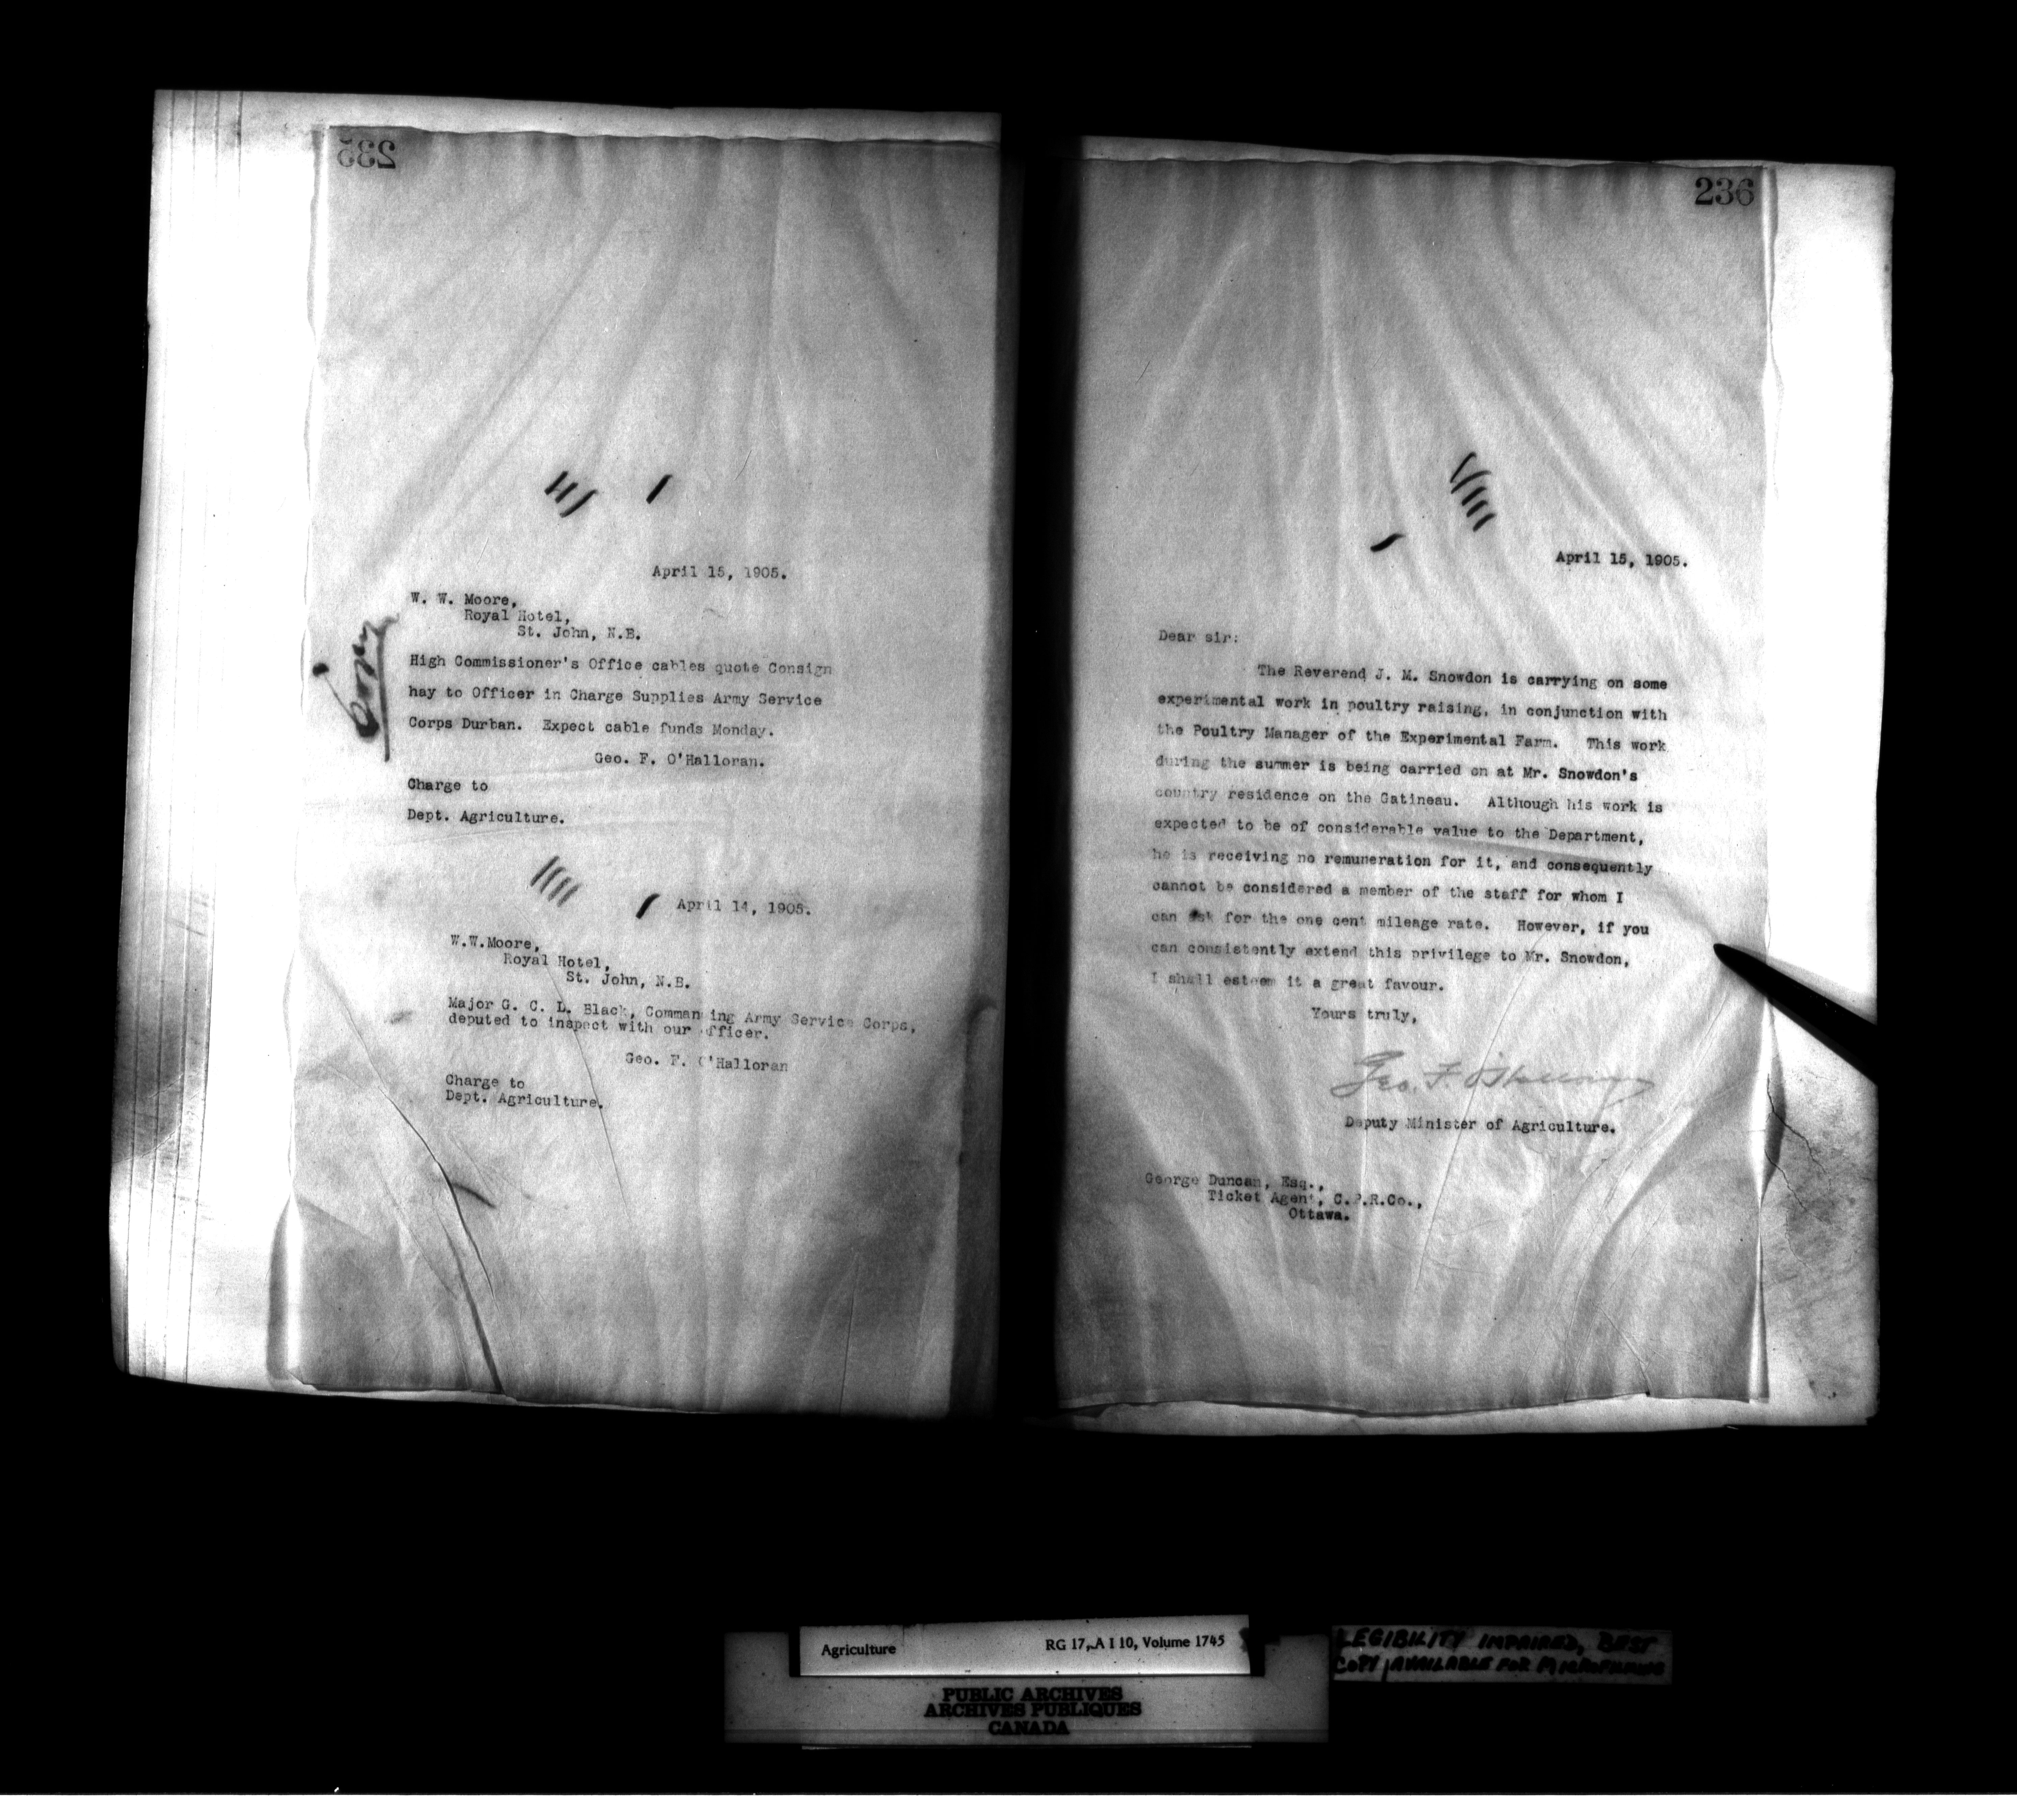 235
Copy
April 15, 1905.
W. W. Moore,
Royal Hotel,
St. John, N.B.
High Commissioner's Office cables quote Consign
hay to Officer in Charge Supplies Army Service
Corps Durban. Expect cable funds Monday.
Geo. F. O'Halloran.
Charge to
Dept. Agriculture.
April 14, 1905.
W.W.Moore,
Royal Hotel,
St. John, N.B.
Major G. C. L. Black, Commanding Army Service Corps,
deputed to inspect with our officer.
Geo. F. O'Halloran
Charge to
Dept. Agriculture.
236
April 15, 1905.
Dear sir:
The Reverend J. M. Snowdon is carrying on some
experimental work in poultry raising, in conjunction with
the Poultry Manager of the Experimental Farm. This work
during the summer is being carried on at Mr. Snowdon's
country residence on the Gatineau. Although his work is
expected to be of considerable value to the Department,
he is receiving no remuneration for it, and consequently
cannot be considered a member of the staff for whom I
can ask for the one cent mileage rate. However, if you
can consistently extend this privilege to Mr. Snowdon,
I shall esteem it a great favour.
Yours truly,
Geo. F. O'Halloran
Deputy Minister of Agriculture.
George Duncan, Esq.,
Ticket Agent, C.P.R.Co.,
Ottawa.
Agriculture RG 17, A I 10, Volume 1745
PUBLIC ARCHIVES
ARCHIVES PUBLIQUES
CANADA
LEGIBILITY IMPAIRED, BEST
COPY AVAILABLE FOR MICROFILMING